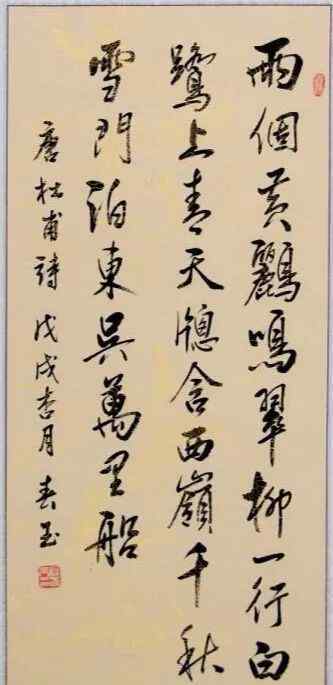 兩個黃鸝鳴翠柳一行白
鷺上青天窗含西嶺千秋
雪門泊東吳萬里船
唐杜甫詩 戊戌杏月 春玉